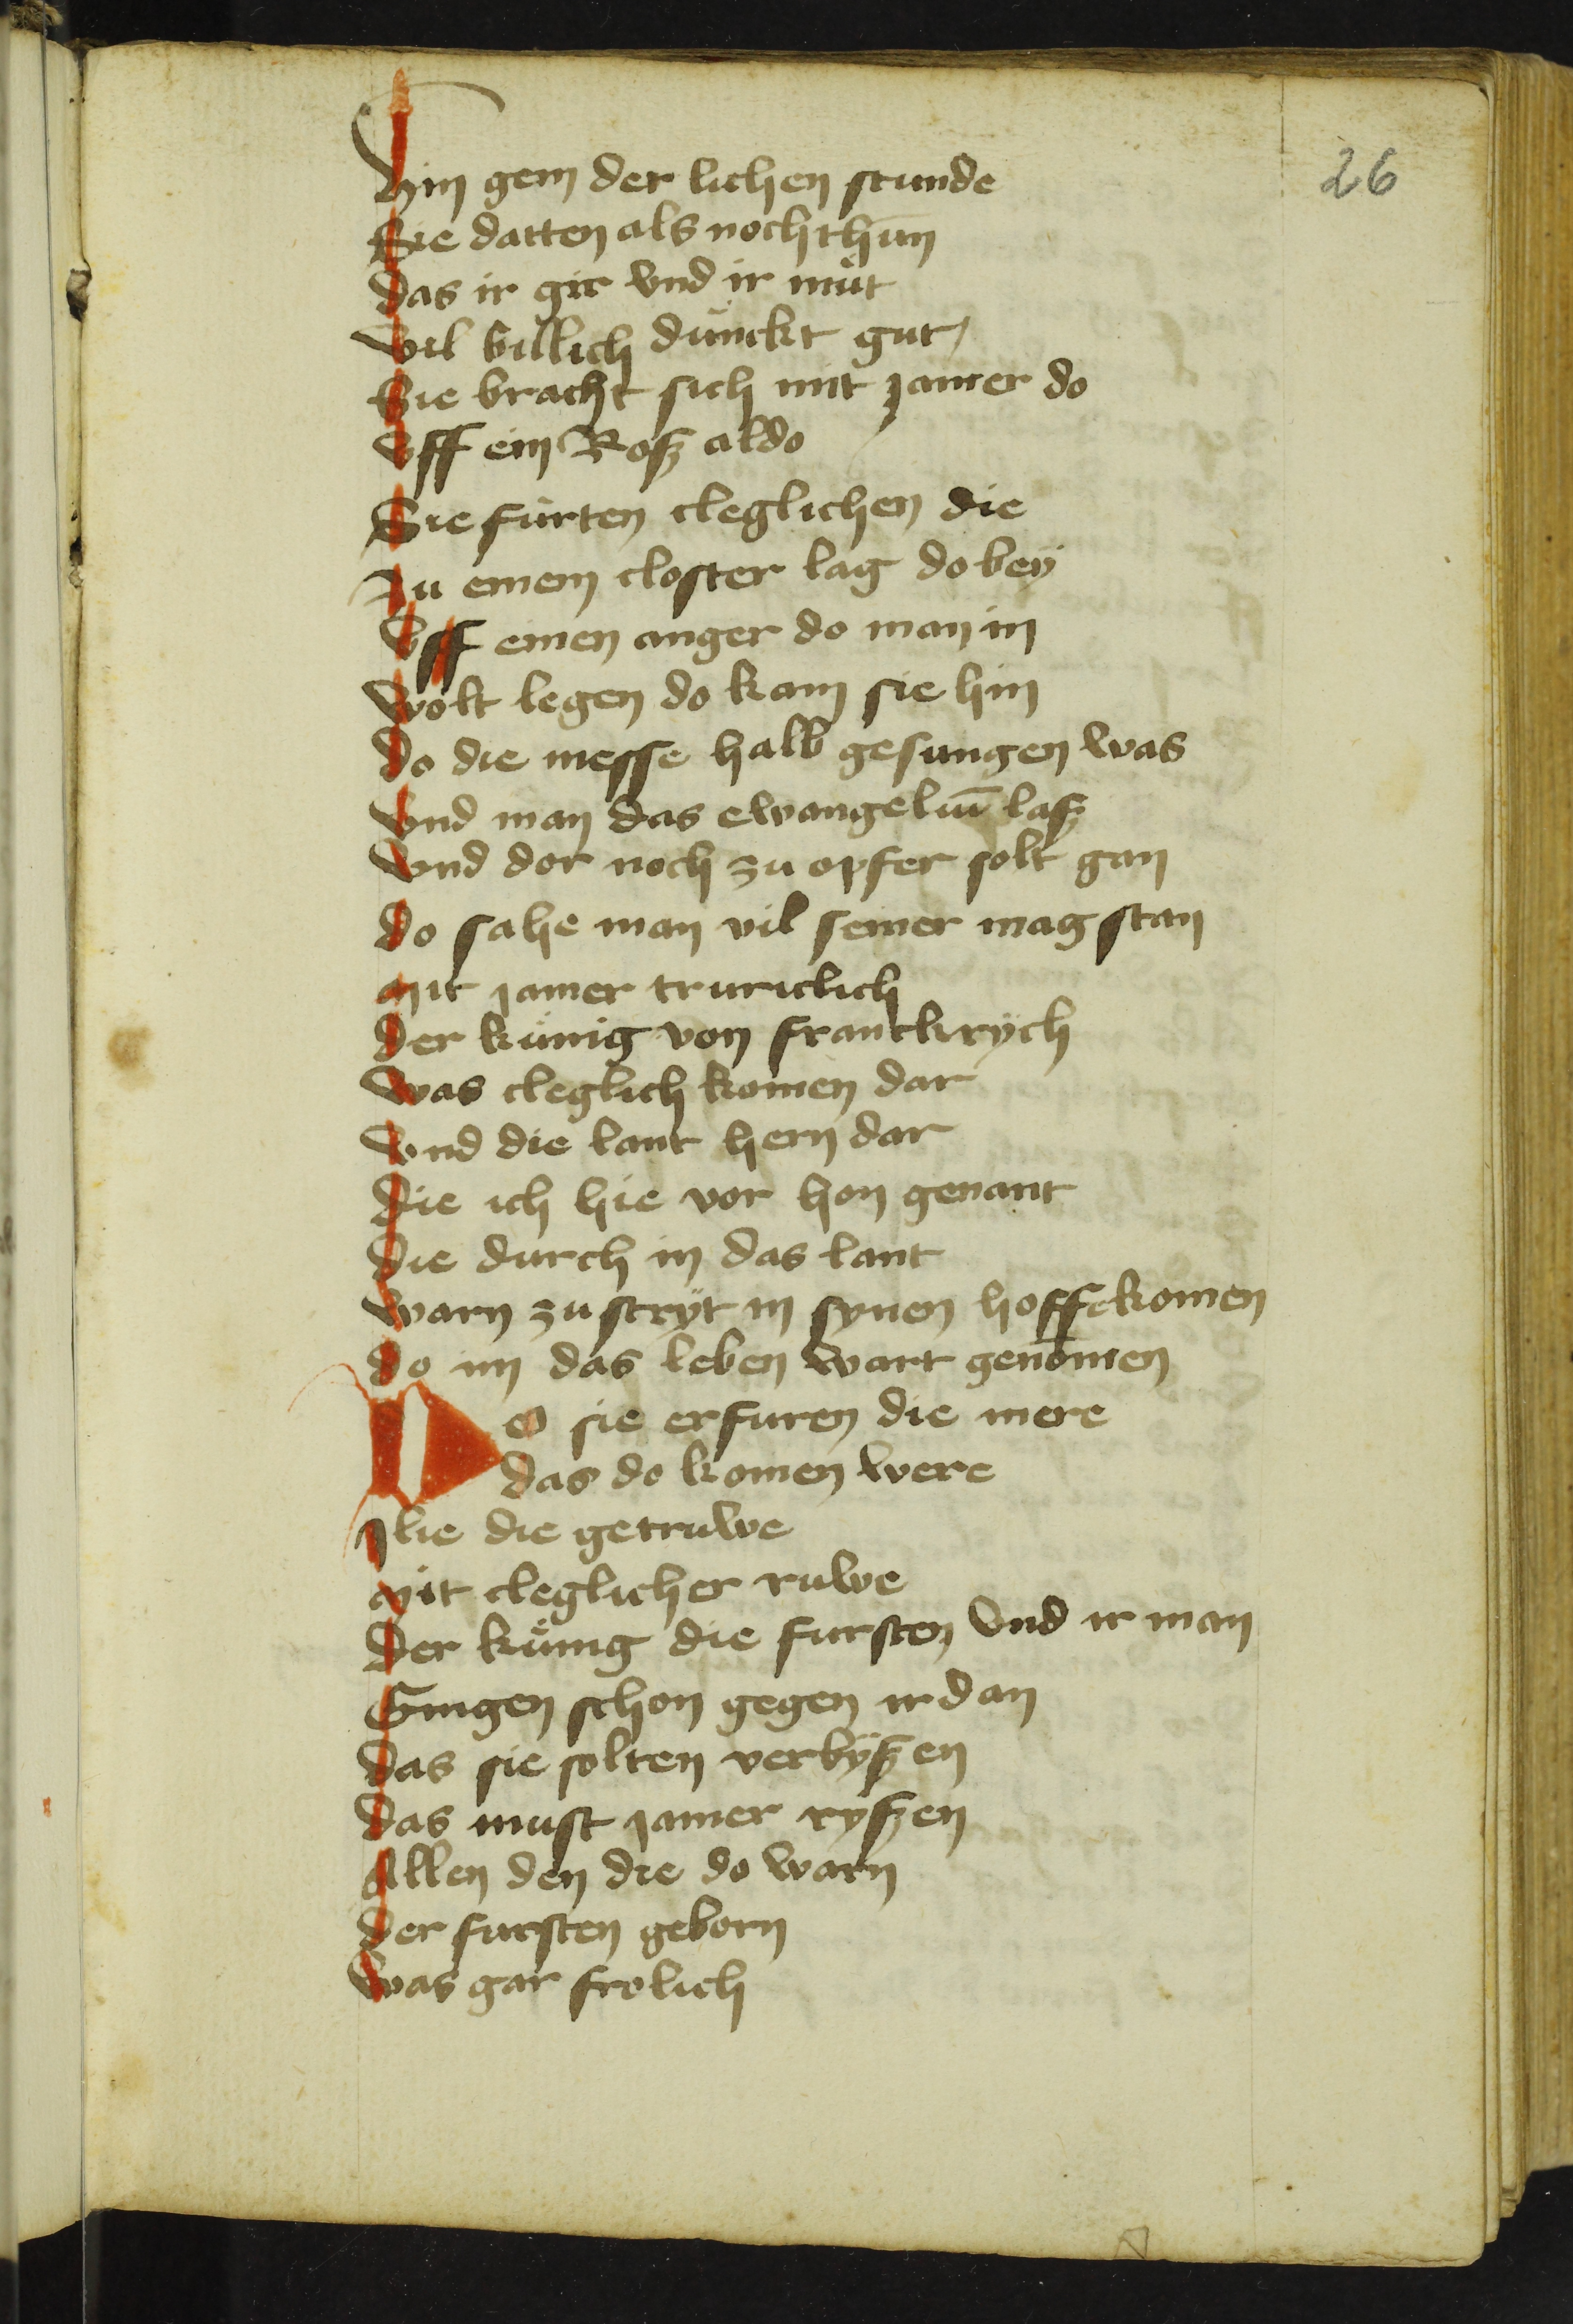 26
Hin gem der lichen stunde
Sie datten als noch thun
das ir git vnd ir můt
vil billich dünckt gut
Sie bracht sich mit jamer do
vff ein Rosz aldo
Sie fürten cleglichen die
zu einem closter lag do bey
vff einen anger do man in
wolt legen do kam sie hin
do die messe halb gesungen was
vnd man das ewangeliū lasz
vnd dor noch zu opfer solt gan
do sahe man vil seiner mag stan
mit jamer truriclich
der künig von franckrych
was cleglich komen dar
vnd die lant hern dar
die ich hie vor hon genant
die durch in das lant
warn zu stryt in synen hoff komen
do im das leben wart genōmen
Do sie erfuren die mere
das do komen were
Jlie die getruwe
mit cleglicher ruwe
Der künig die fursten vnd ir man
Gingen schon gegen ir dan
das sie solten verbyszen
das must jamer ryszen
Allen den die do warn
der fursten geborn
was gar frolich